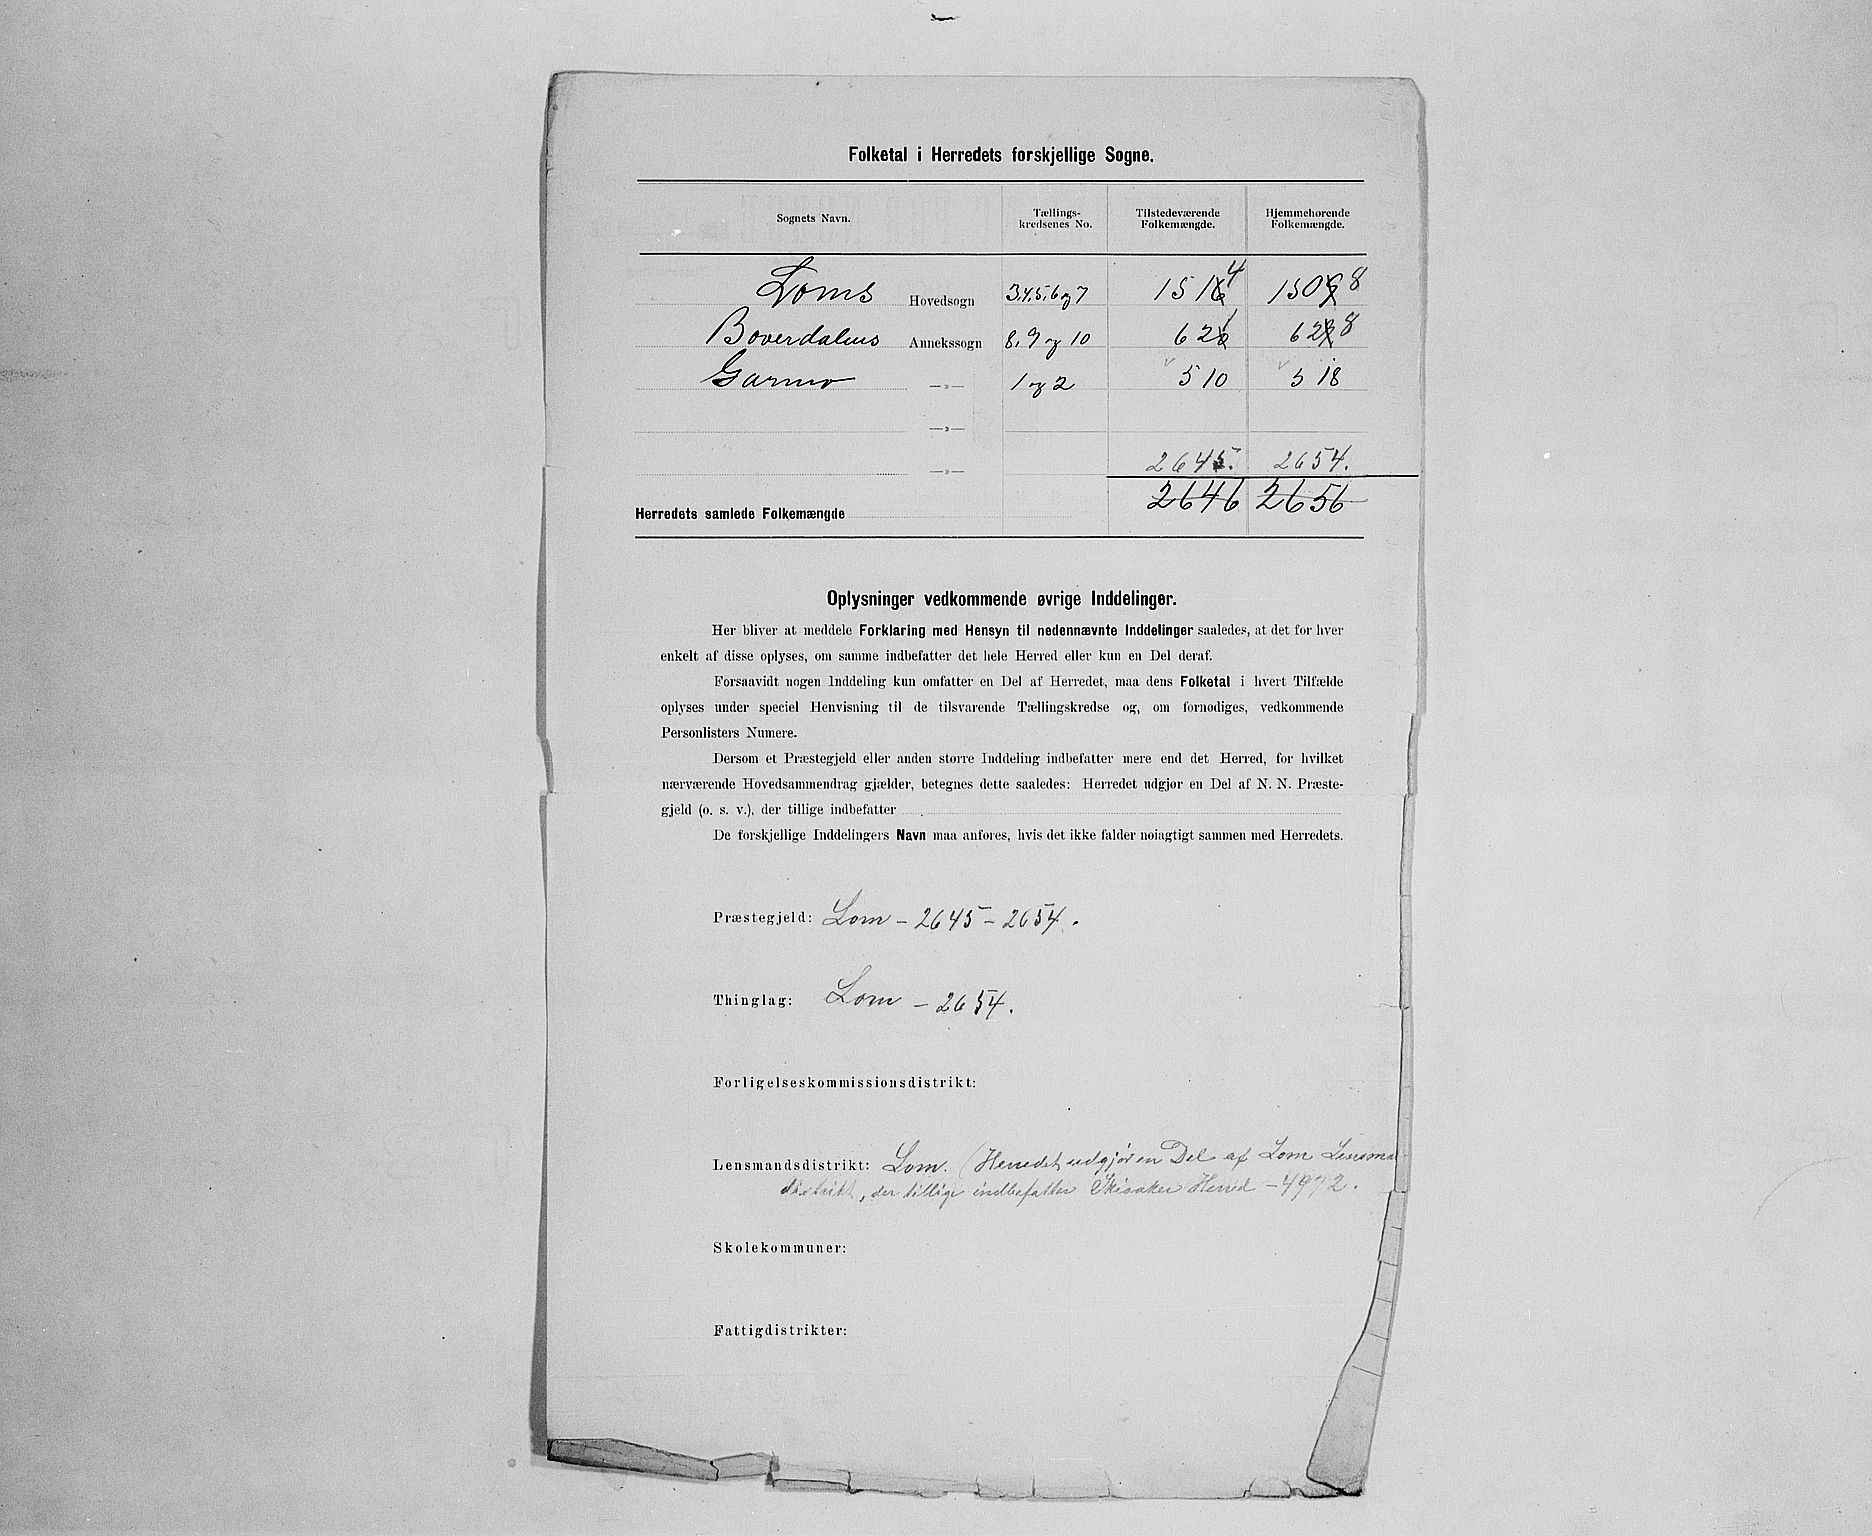 Folketal i Herredets forskjellige Sogne.
Sognets Navn. Tællings-kredsenes No. Tilstedeværende Folkemængde. Hjemmehørende Folkemængde.
Loms Hovedsogn 3,4,5,6 og 7 1514 1508
Boverdalens Annekssogn 8, 9 og 10 621 628
Garmo —»— 1 og 2 510 518
—»—
—»— 2645. 2654.
Herredets samlede Folkemængde 2646 2656
Oplysninger vedkommende øvrige Inddelinger.
Her bliver at meddele Forklaring med Hensyn til nedennævnte Inddelinger saaledes, at det for hver
enkelt af disse oplyses, om samme indbefatter det hele Herred eller kun en Del deraf.
Forsaavidt nogen Inddeling kun omfatter en Del af Herredet, maa dens Folketal i hvert Tilfælde
oplyses under speciel Henvisning til de tilsvarende Tællingskredse og, om fornødiges, vedkommende
Personlisters Numere.
Dersom et Præstegjeld eller anden større Inddeling indbefatter mere end det Herred, for hvilket
nærværende Hovedsammendrag gjælder, betegnes dette saaledes: Herredet udgjør en Del af N. N. Præste-
gjeld (o. s. v.), der tillige indbefatter
De forskjellige Inddelingers Navn maa anføres, hvis det ikke falder nøiagtigt sammen med Herredets.
Præstegjeld: Lom – 2645 – 2654.
Thinglag: Lom – 2654.
Forligelseskommissionsdistrikt:
Lensmandsdistrikt: Lom. (Herredet udgjør en Del af Lom Lensma
distrikt, der tillige indbefatter Skiaker Herred – 4972.
Skolekommuner:
Fattigdistrikter: